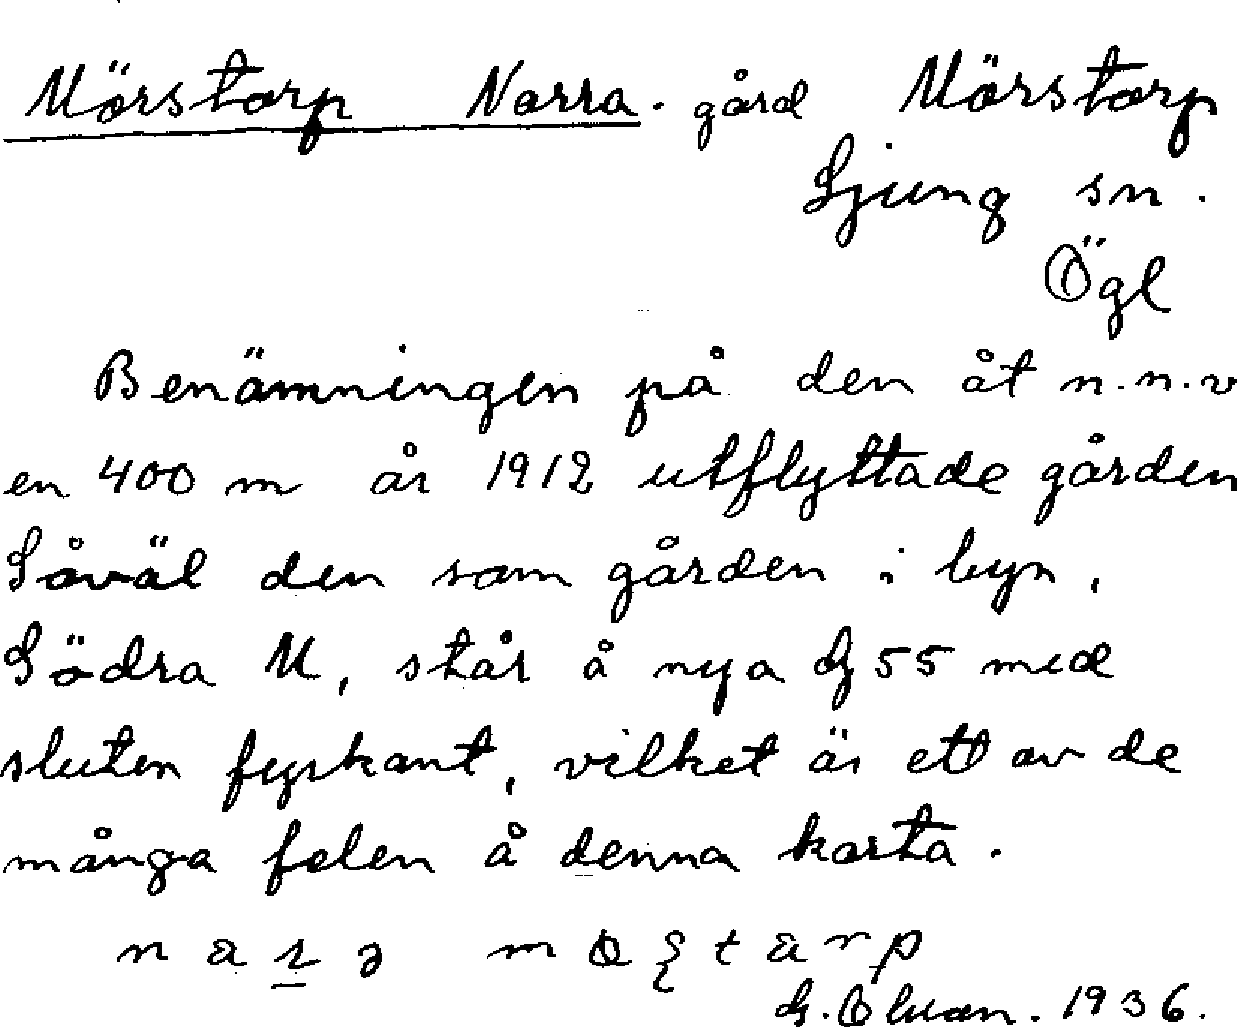 Mörstorp Norra. gård Mörstorp
Ljung sn.
Ögl
Benämningen på den åt n.n.v
en 400 m år 1912 utflyttade gården
Såväl den som gården i byn,
Södra M, står å nya G 55 med
sluten fyrkant, vilket är ett av de
många felen å denna karta.
1936.